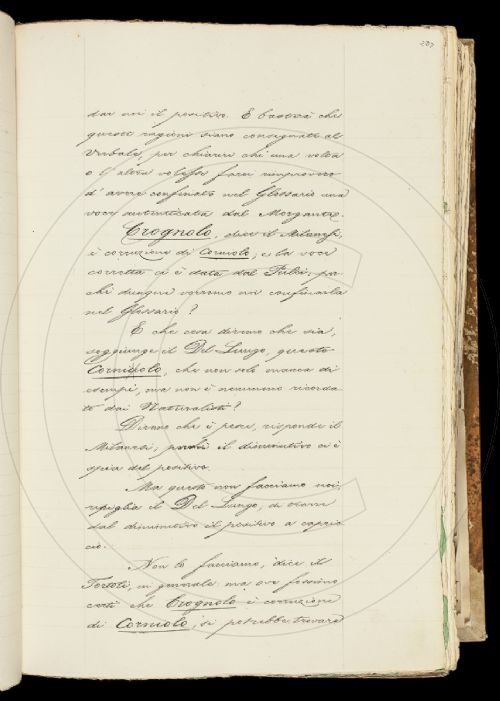 207
dar noi il positivo. E basterà che
queste ragioni siano consegnate al
Verbale, per chiarire chi una volta
o l'altra volesse farci rimprovero
d'avere confinato nel Glossario una
voce autenticata dal Morgante.
Crognolo, dice il Milanesi,
è corruzione di Corniolo, e la voce
corretta ci è data dal Pulci, per
chè dunque vorremo noi confinarla
nel Glossario?
E che cosa diremo che sia,
soggiunge il Del Lungo, questo
Corniolo, che non solo manca di
esempi, ma non è nemmeno ricorda
to dai Naturalisti?
Diremo che è pesce, risponde il
Milanesi, perchè il diminutivo ci è
spia del positivo.
Ma questo non facciamo noi,
ripiglia il Del Lungo, di trarre
dal diminutivo il positivo a capric
cio.
Non lo facciamo, dice il
Tortoli, in generale ma ove fossimo
certi che Crognolo è corruzione
di Corniolo, si potrebbe trovare